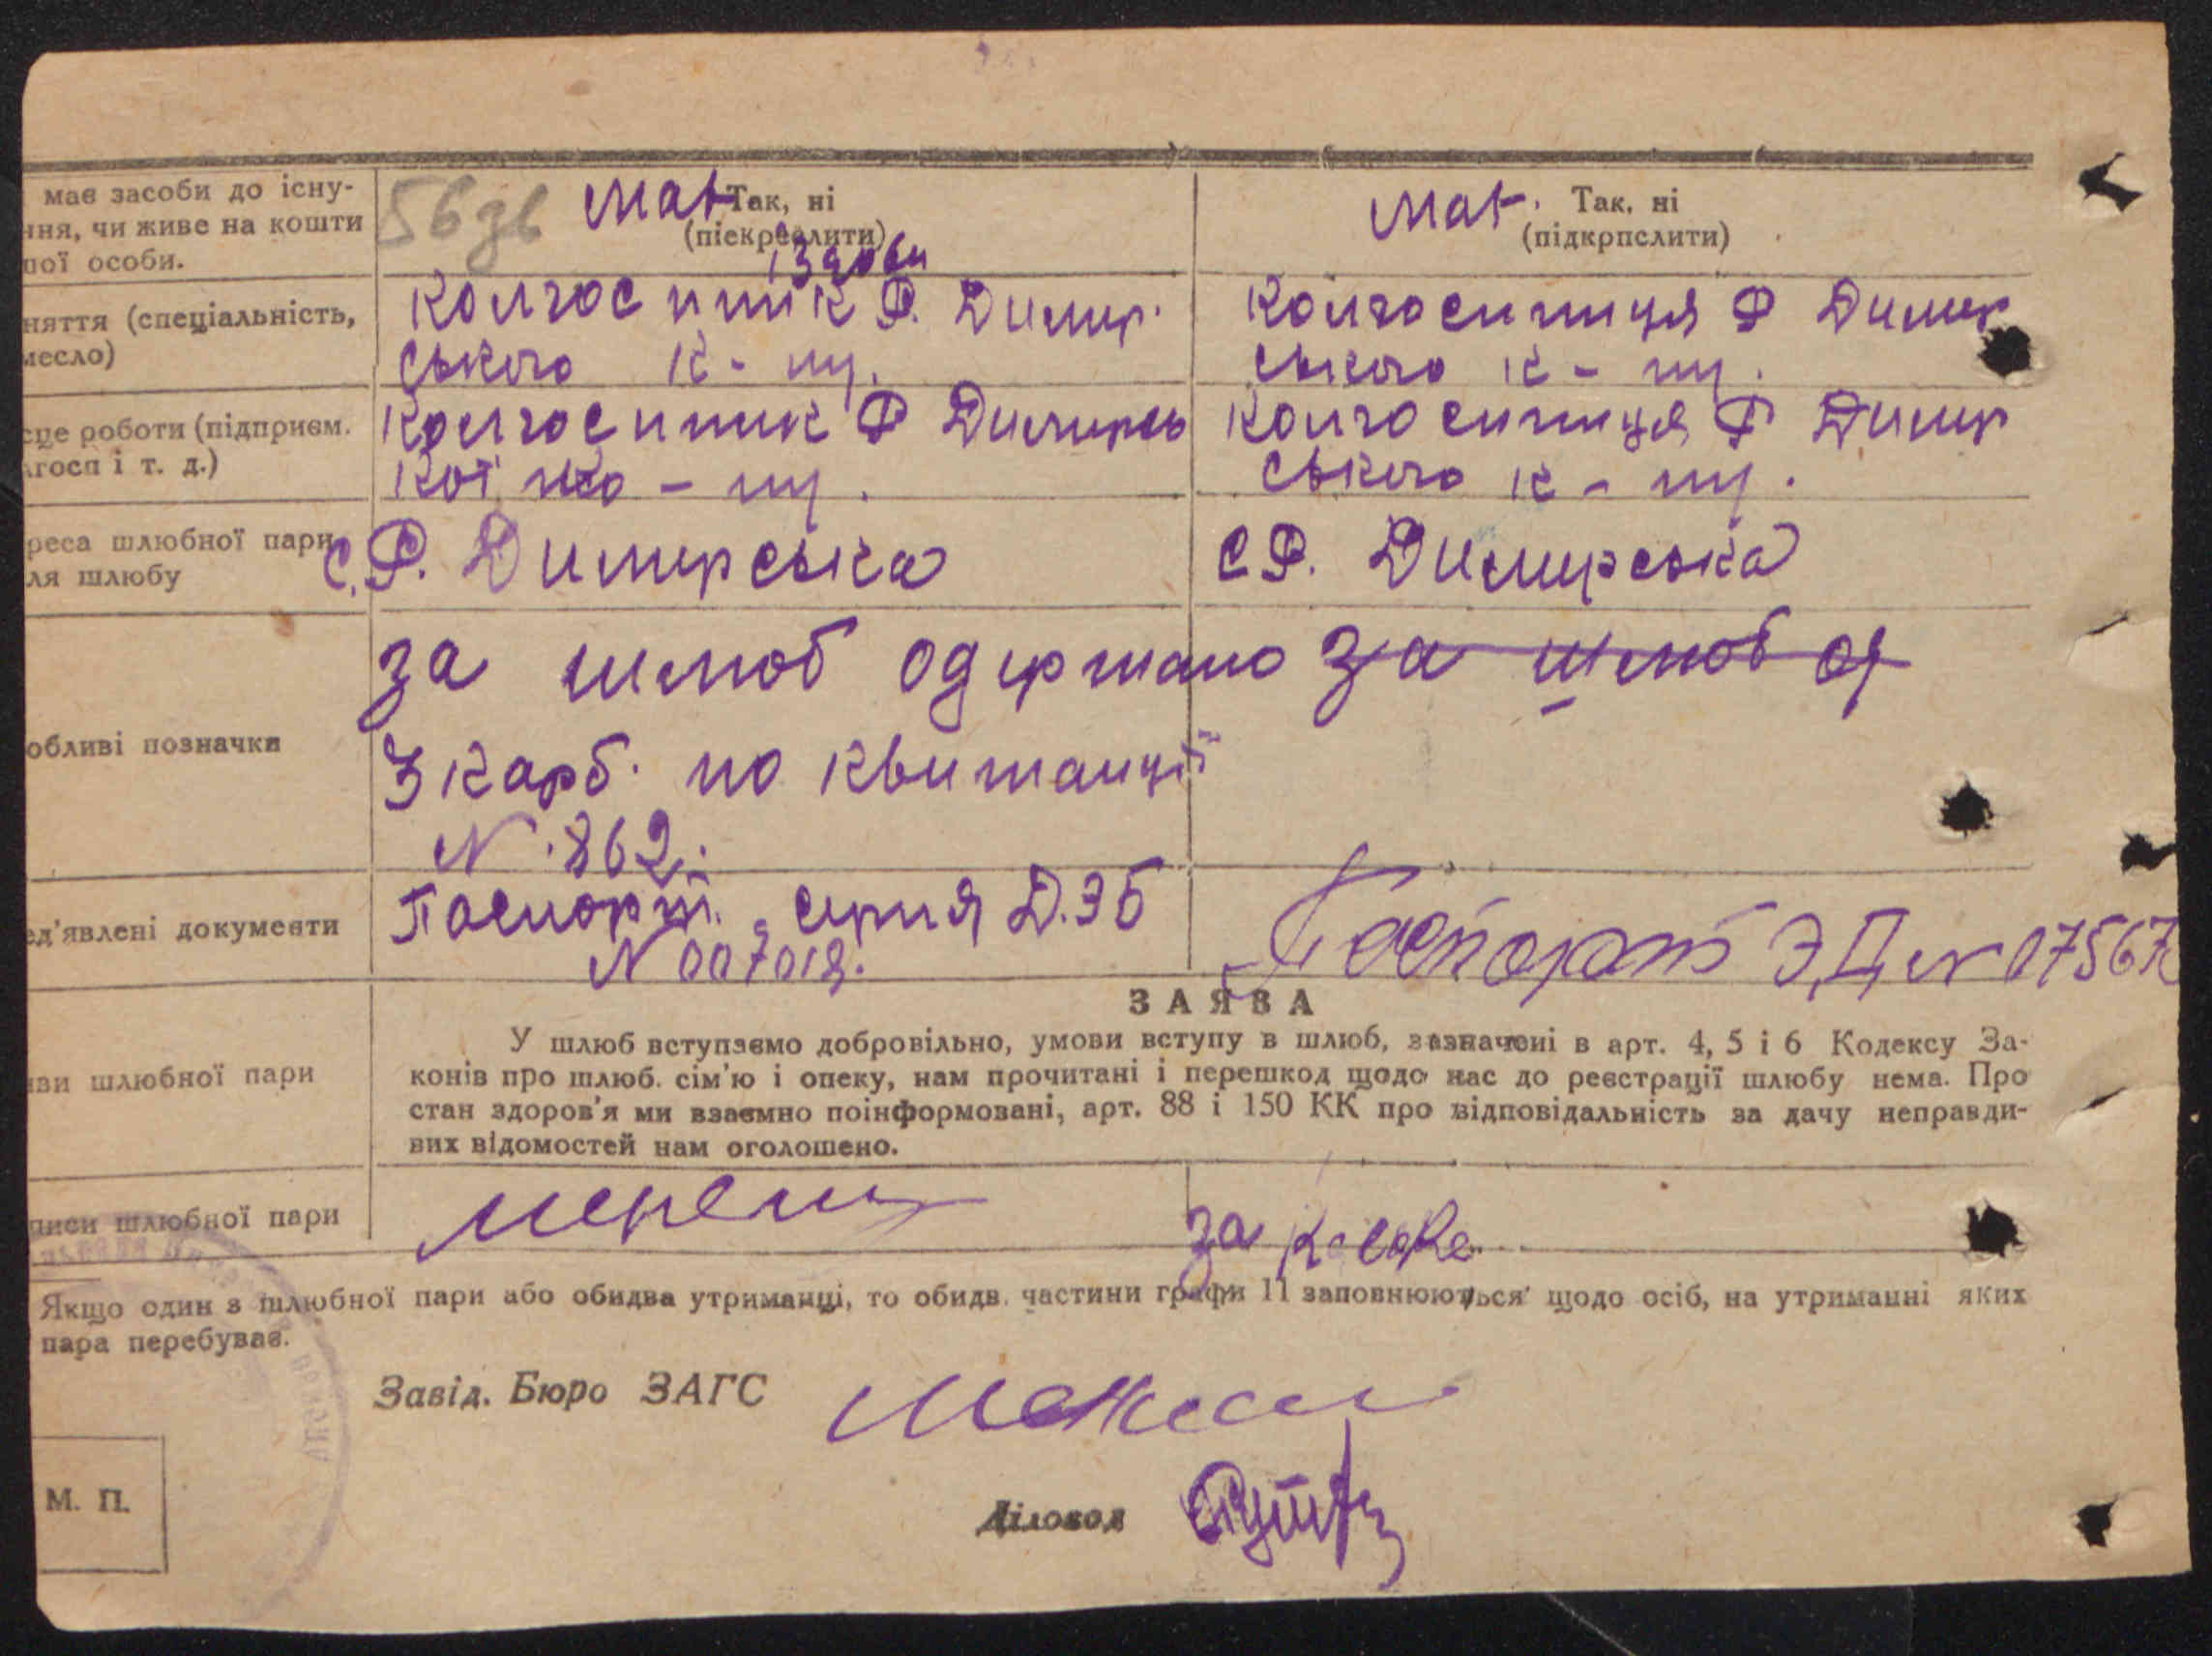 має засоби до існу-
ння, чи живе на кошти
ої особи.
56 зв
має Так, ні
(піекреслити)
має. Так, ні
(підкрпслити)
няття (спеціальність,
месло)
колгоспник Ф. Димер
ського к-ту.
колгоспниця Ф Димер
ського к-ту.
сце роботи (підприєм.
лгосп і т. д.)
колгоспник Ф Димирсь
кот – ту.
колгоспниця Ф Димер
ського к – ту.
реса шлюбної пари
ля шлюбу
с. Ф. Димерська
с Ф. Димерська
обливі позначки
за шлюб одержано за шлюб од
3 карб. по квитанції
N. 862.
ед'явлені документи
Паспорт. серия Д.ЭБ
N 007018.
Паспорт ЭД N 07567
ЗАЯВА
яви шлюбної пари
У шлюб вступаємо добровільно, умови вступу в шлюб, зазначені в арт. 4, 5 і 6 Кодексу За-
конів про шлюб. сім'ю і опеку, нам прочитані і перешкод щодо нас до реєстрації шлюбу нема. Про
стан здоров'я ми взаємно поінформовані, арт. 88 і 150 КК про відповідальність за дачу неправди-
вих відомостей нам оголошено.
писи шлюбної пари
за
Якщо один з шлюбної пари або обидва утриманці, то обидв. частини графи 11 заповнюються щодо осіб, на утриманні яких
пара перебуває.
Завід. Бюро ЗАГС
Діловод
М. П.